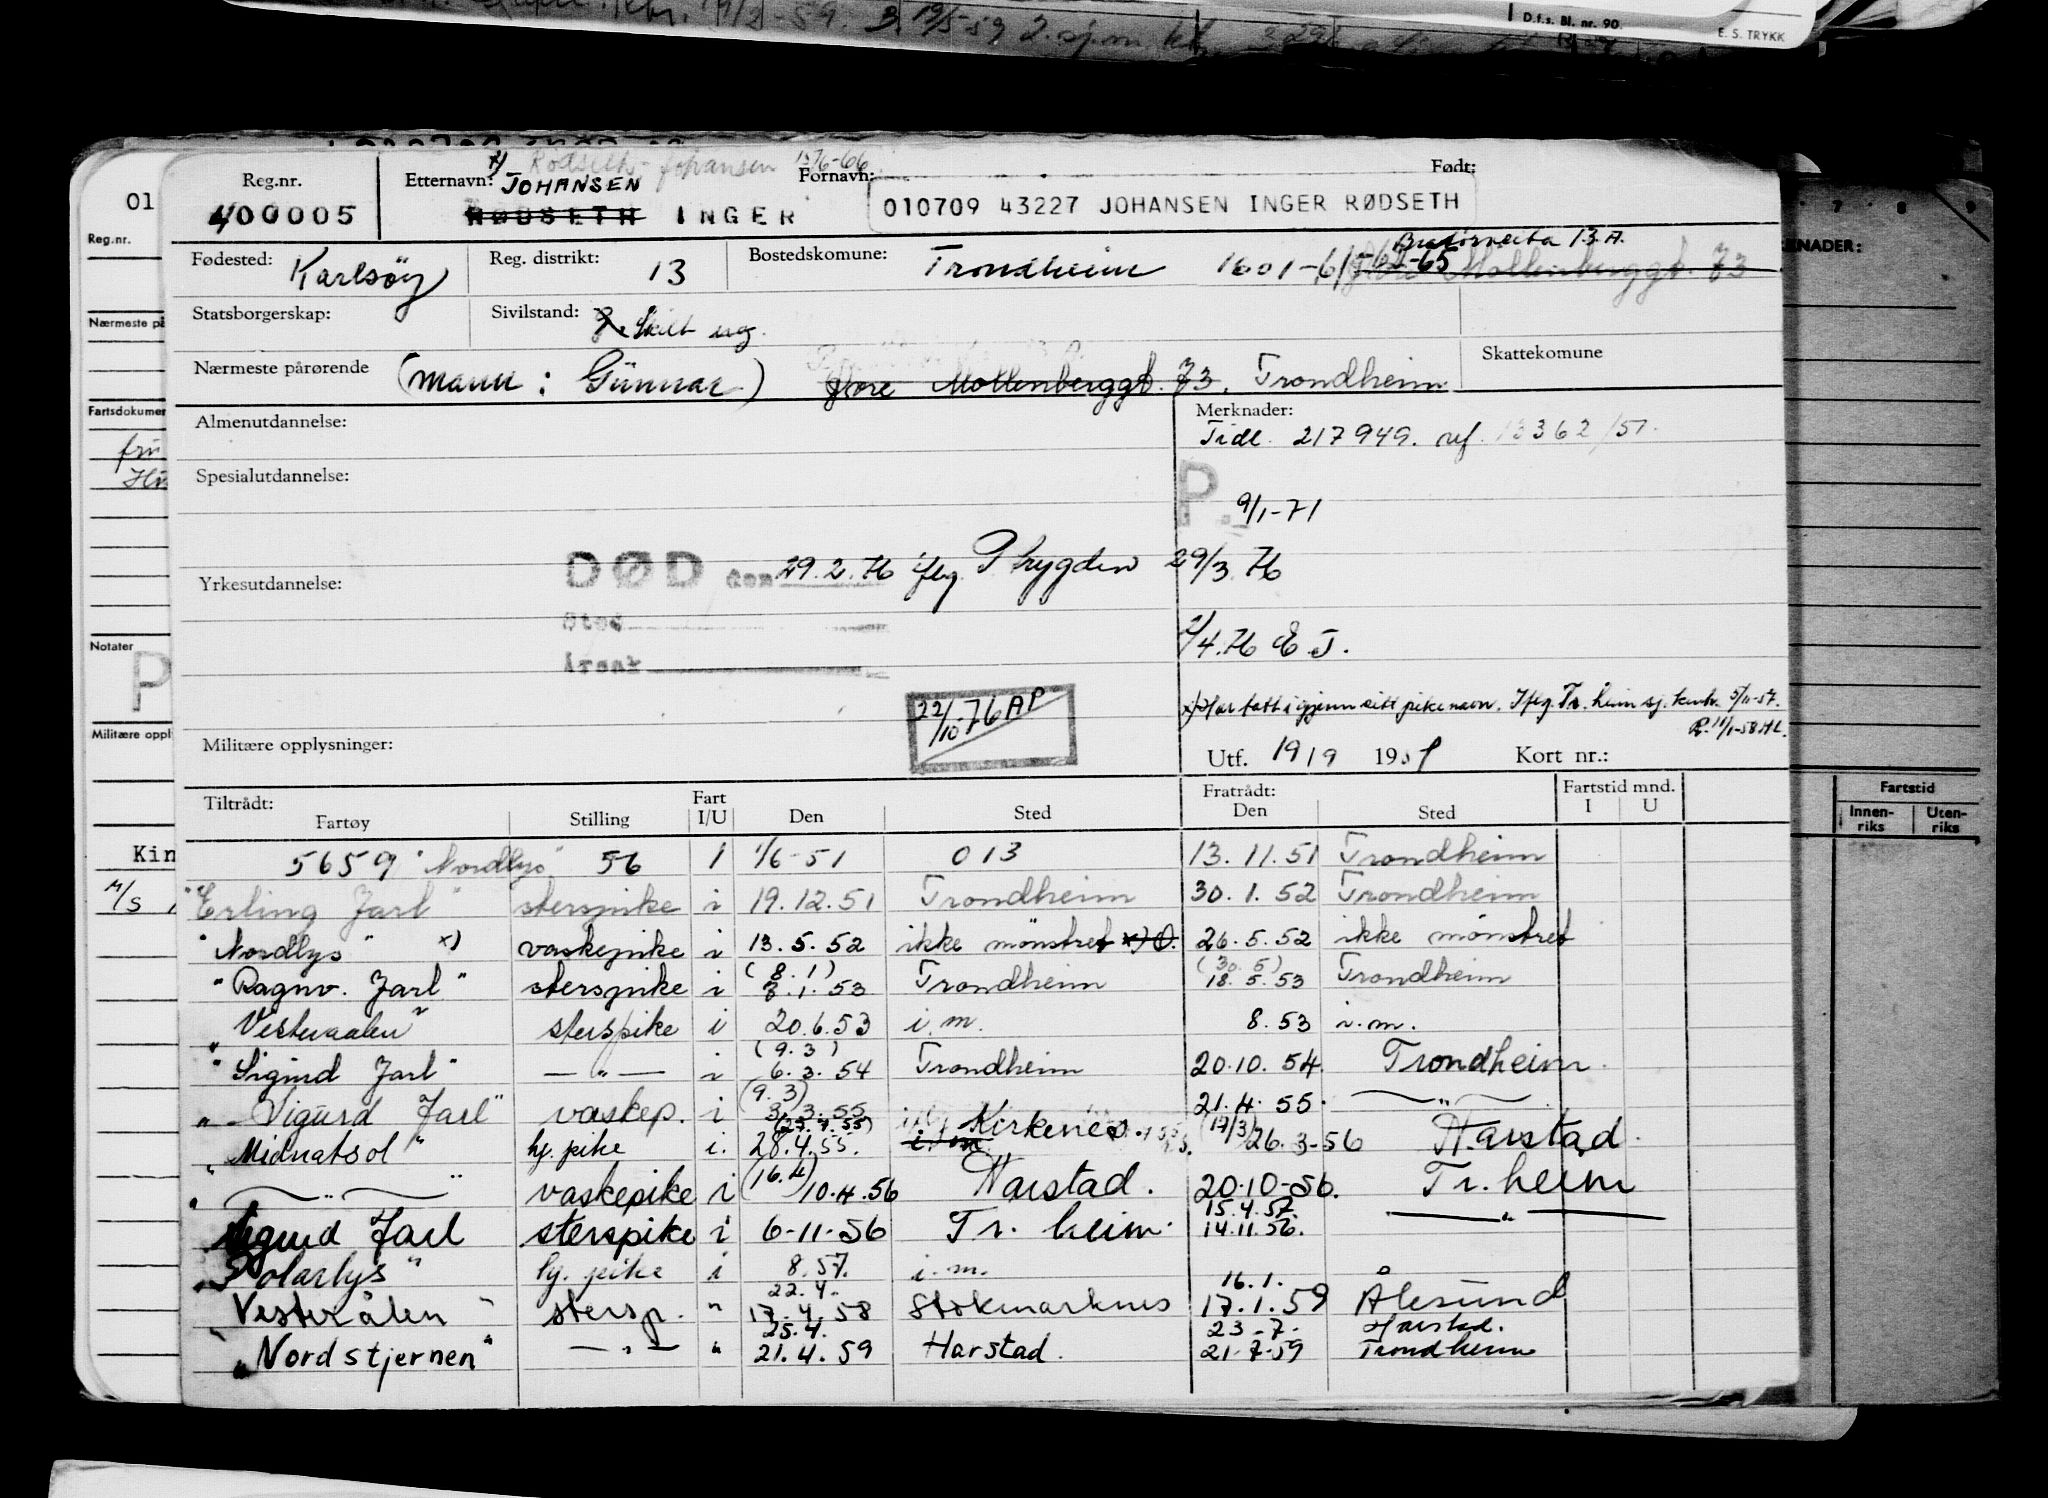 D.f.s. Bl. nr. 90.
E. S. TRYKK
Reg.nr.
400005
Etternavn: x) Rödseth-Johansen 15/6-66
JOHANSEN
RØDSETH INGER
Fornavn:
Født:
010709 43227 JOHANSEN INGER RØDSETH
Fødested: Karlsöy
Reg. distrikt: 13
Bostedskomune: Trondheim 1601-61
Mollenberggt. 73
Statsborgerskap:
Sivilstand: Skilt
Nærmeste pårørende (Mann: Gunnar) Mollenberggt. 73, Trondheim
Skattekomune
Almenutdannelse:
Merknader:
Tidl. 217949. ref. 13362/51.
Spesialutdannelse:
P.
9/1-71
Yrkesutdannelse:
DØD den 29.2.76 iflg. P trygden 29/3.76
Sted
2/4.76 E.J.
Årsak
22/10-76 AP
x) Har tatt igjenn sitt pikenavn. Iflg. Tr.heim sj. kontr. 5/11-57.
R. 11/1-58 HL.
Militære opplysninger:
Utf. 19/9 1951 Kort nr.:
Tiltrådt:
Fartøy Stilling Fart I/U Den Sted
Fratrådt:
Den Sted
Fartstid mnd.
I U
5659 "Nordlys" 56 1 1/6-51 013 13.11.51 Trondheim
"Erling Jarl" sterspike i 19.12.51 Trondheim 30.1.52 Trondheim
"Nordlys" x) vaskepike i 13.5.52 ikke mönstret 26.5.52 ikke mönstret
"Ragnv. Jarl" sterspike i (8.1) 7.1.53 Trondheim (30.5) 18.5.53 Trondheim
"Vesteraalen" sterspike i 20.6.53 i.m. 8.53 i.m.
"Sigurd Jarl" — " — i (9.3) 6.3.54 Trondheim 20.10.54 Trondheim.
"Sigurd Jarl" vaskep. i (9.3) 3.3.55 21.4.55. — " —
"Midnatsol" hj. pike i. 28.4.55. i.m. Kirkenes (17/3) 26.3-56 Harstad.
" — " — " vaskepike i (16.4) 10.4.56 Harstad. 20.10-56. Tr.heim
Sigurd Jarl sterspike i 6-11-56 Tr.heim. 15.4.57. 14.11.56. — " —
"Polarlys" hj. pike i 8.57. i.m.
"Vesterålen" stersp. " 22.4. 17.4.58 Stokmarknes 16.1. 17.1.59 Ålesund
"Nordstjernen" — " — " 25.4. 21.4.59 Harstad. 23-7- 21-7-59 Harstad. Trondheim
01
Reg.nr.
Nærmeste på
Fartsdokumen
Notater
P
Militære oppl
Kin
M/S
7 8 9
NADER:
Fartstid
Innen-
riks
Uten-
riks